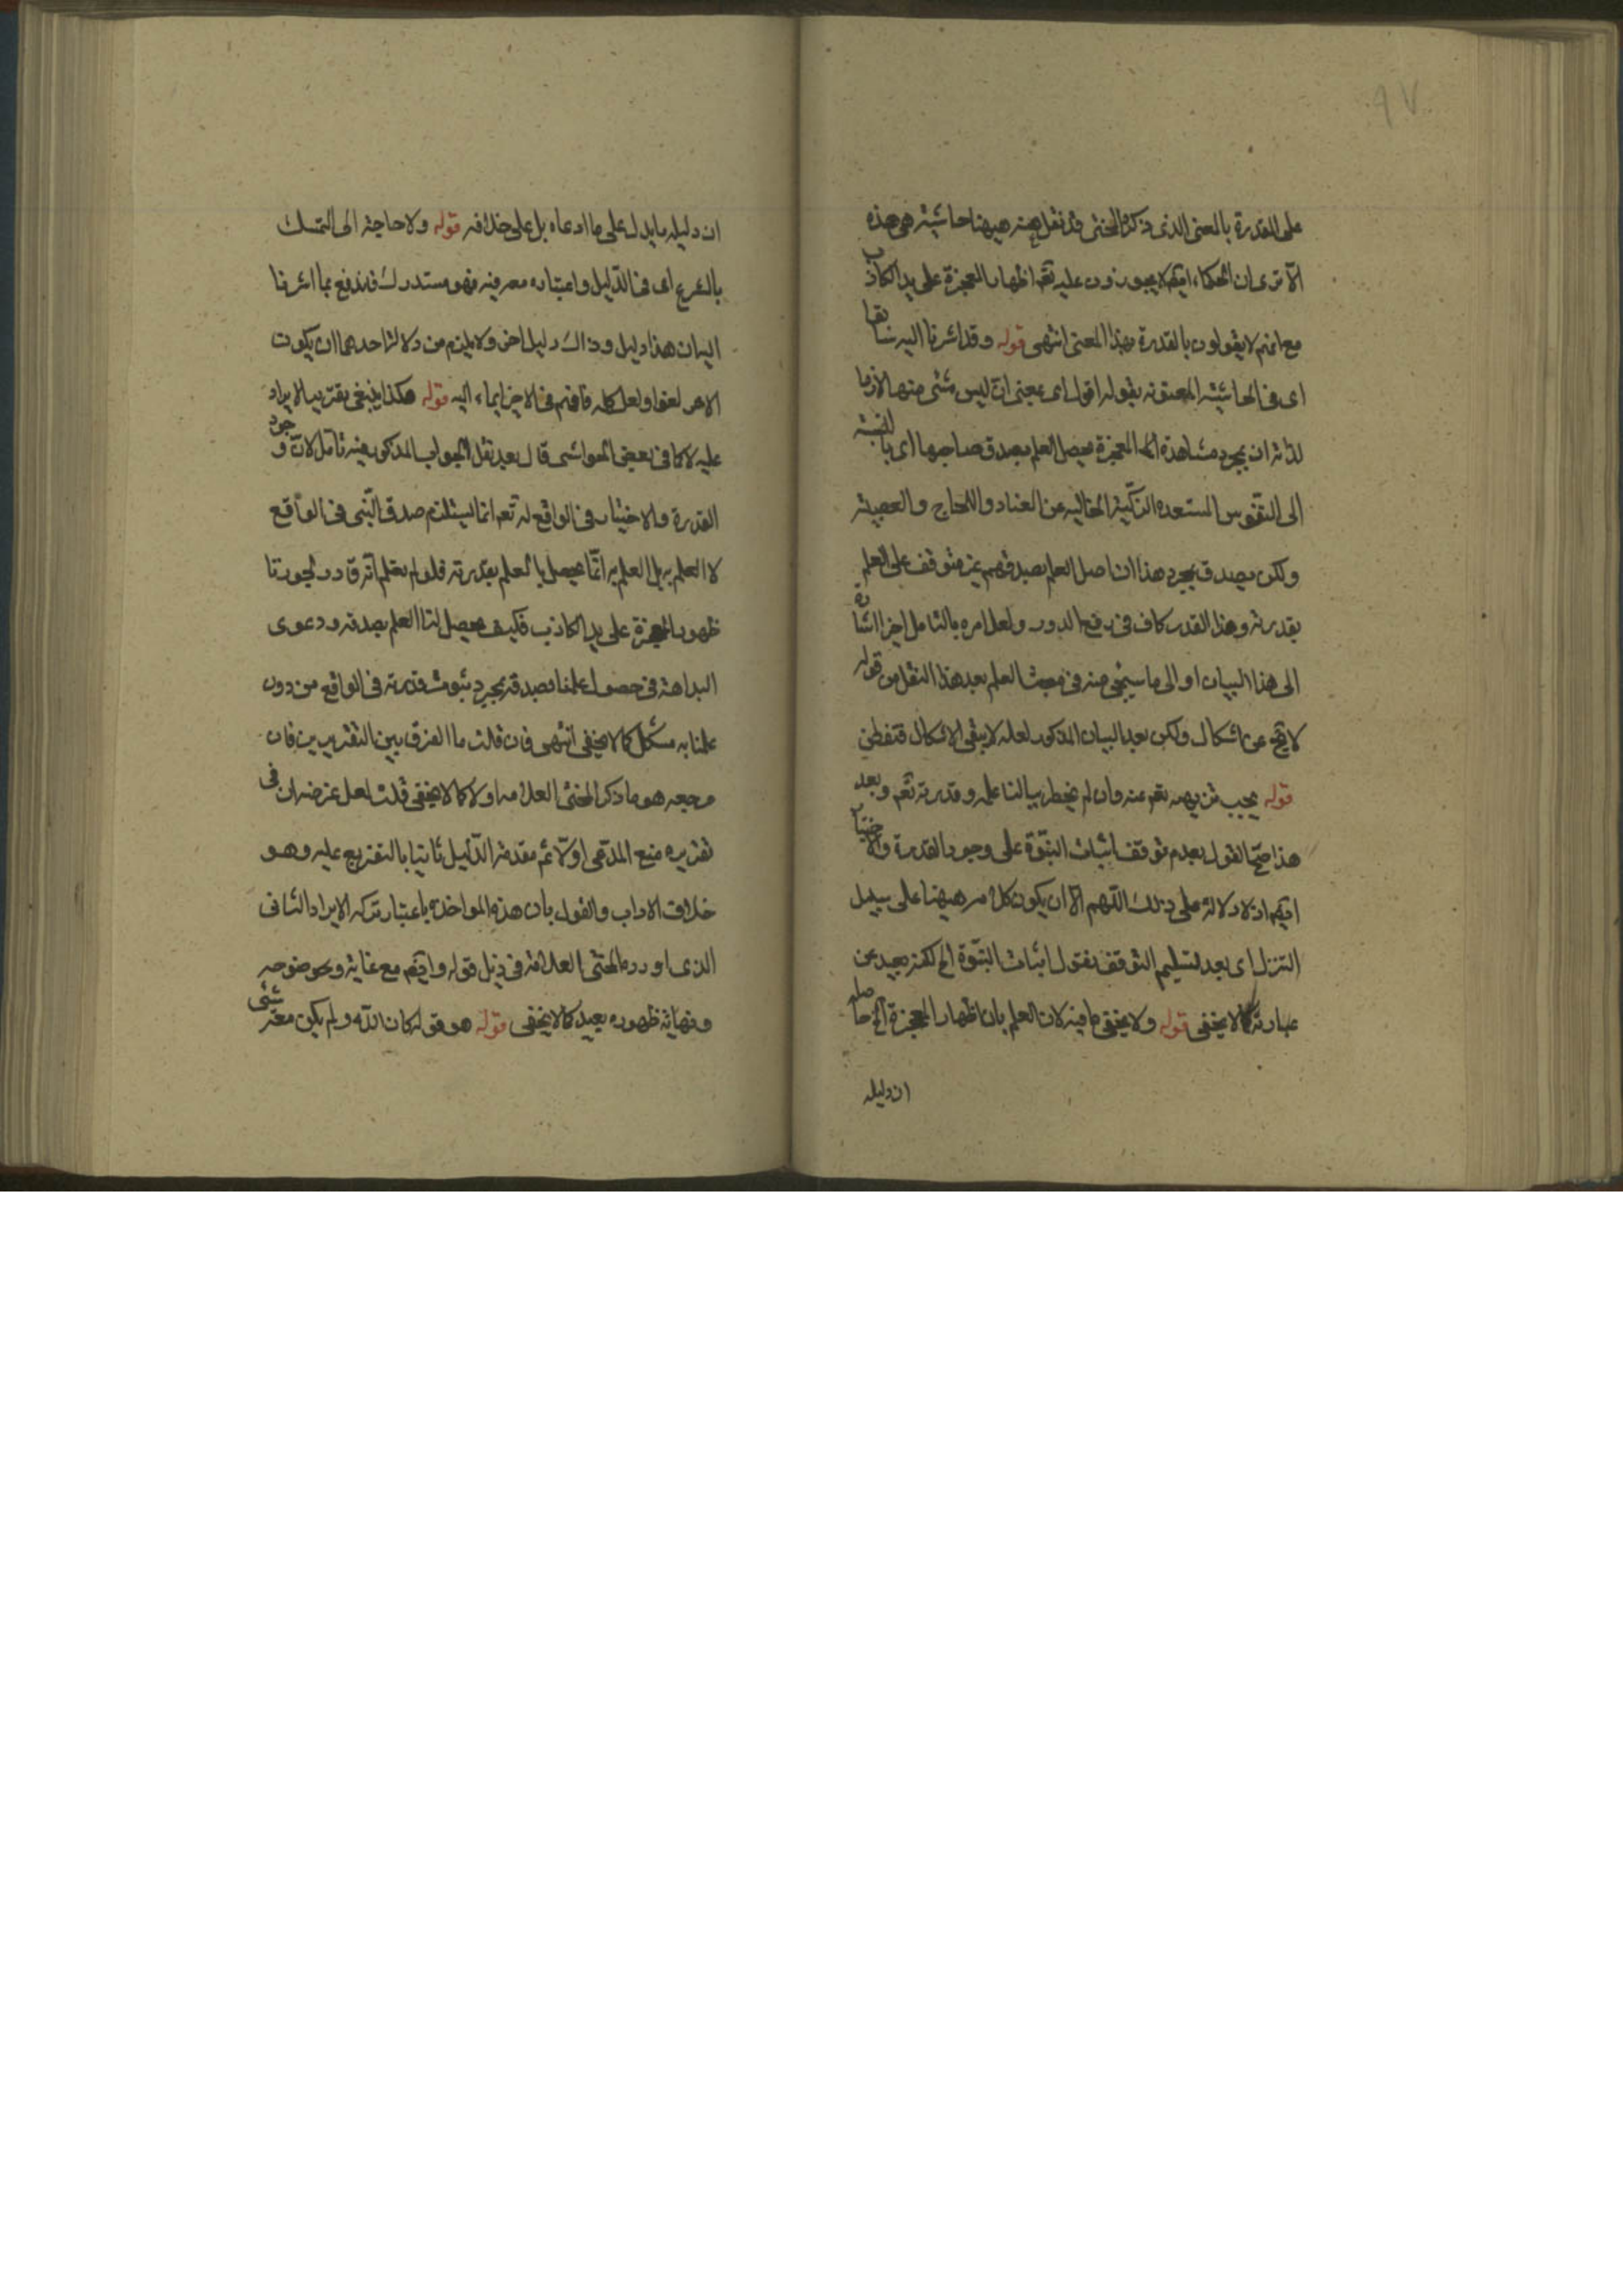 ٩٧
على القدرة بالمعنى الذى ذكره المحشى قد نقل عنه ههنا حاشية هى هذه
الا ترى ان الحكماء ايضا لا يجوزون عليه تعم اظهار المعجزة على يد الكاذب
مع انهم لا يقولون بالقدرة بهذا المعنى انتهى قوله وقد اشرنا اليه سابقا
اى فى الحاشية المعنونه بقوله اقول اى بمعنى ان ليس شئ منها لازما
لذاته ان بمجرد مشاهدة المعجزة يحصل العلم بصدق صاحبها اى بالنسبة
الى النفوس المستعده الزكية الخاليه عن العناد واللجاج والعصبية
ولكن بصدق بمجرد هذا ان اصل العلم بصدقهم غير متوقف على العلم
بقدرته وهذا القدر كاف فى رفع الدور ولعل امره بالتامل اخرا اشارة
الى هذا البيان او الى ما سيجئ منه فى مبحث العلم بعد هذا النقل من قوله
لا يخ عن اشكال ولكن بعد البيان المذكور لعله لا يبقى الاشكال فتفطن
قوله يجب تنزيهه تعم عنه وان لم يخطر ببالنا علمه وقدرته تعم وبعد
هذا صح القول بعدم توقف اثبات النبوة على وجود القدرة والاختيار
ايضا اذ لا دلالة على ذلك اللهم الا ان يكون كلامه ههنا على سبيل
التنزل اى بعد تسليم التوقف نقول اثبات النبوة الخ لكنه بعيد عن
عبارته كما لا يخفى قوله ولا يخفى ما فيه لان العلم بان اظهار المعجزة الخ حاصله
ان دليله
ان دليله ما يدل على ما ادعاه بل على خلافه قوله ولا حاجة الى التمسك
بالشرع اى فى الدليل واعتباره معه فيه فهو مستدرك فندفع بما اشرنا
اليه ان هذا دليل وذاك دليل اخر ولا يلزم من دلالة احدهما ان يكون
الاخر لغوا ولعل كله فافهم فى الاخر ايماء اليه قوله هكذا ينبغى تقرير الايراد
عليه لا كما فى بعض الحواشى قال بعد نقل الجواب المذكور فيه تامل لان وجود
القدرة والاختيار فى الواقع له تعم انما يستلزم صدق النبى فى الواقع
لا العلم به بل العلم به انما يحصل بالعلم بقدرته فلو لم نعلم انه قادر لجوزنا
ظهور المعجزة على يد الكاذب فكيف يحصل لنا العلم بصدقه ودعوى
البداهة فى حصول علمنا بصدقه بمجرد ثبوت قدرته فى الواقع من دون
علمنا به مشكل كما لا يخفى انتهى فان قلت ما الفرق بين التقريرين فان
مرجعه هو ما ذكر المحشى العلامه اولا كما لا يخفى قلت لعل غرضه ان فى
تقريره منع المدعى اولا ثم مقدمة الدليل ثانيا بالتفريع عليه وهو
خلاف الاداب والقول بان هذه المواخذه باعتبار تركه الايراد الثانى
الذى اورده المحشى العلامة فى ذيل قوله وايضا مع غاية وضوحه
ونهاية ظهوره بعيد كما لا يخفى قوله هو قوله كان الله ولم يكن معه شئ